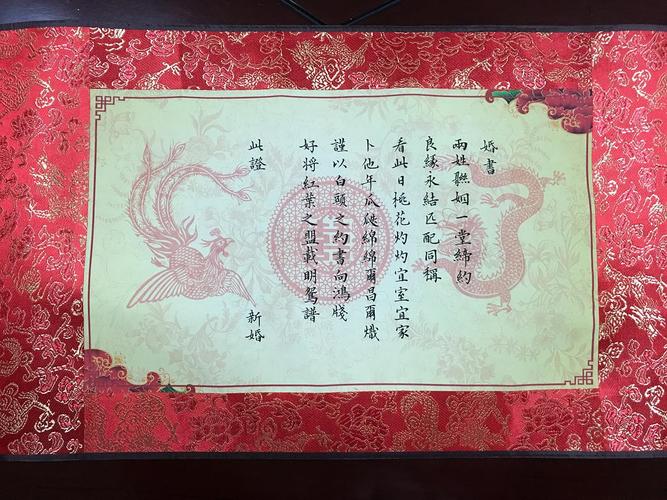 婚書
兩姓聯姻一堂締約
良緣永結匹配同稱
看此日桃花灼灼宜室宜家
卜他年瓜瓞綿綿爾昌爾熾
謹以白頭之約書向鴻牋
好將紅葉之盟載明鴛譜
此證
新婚
囍